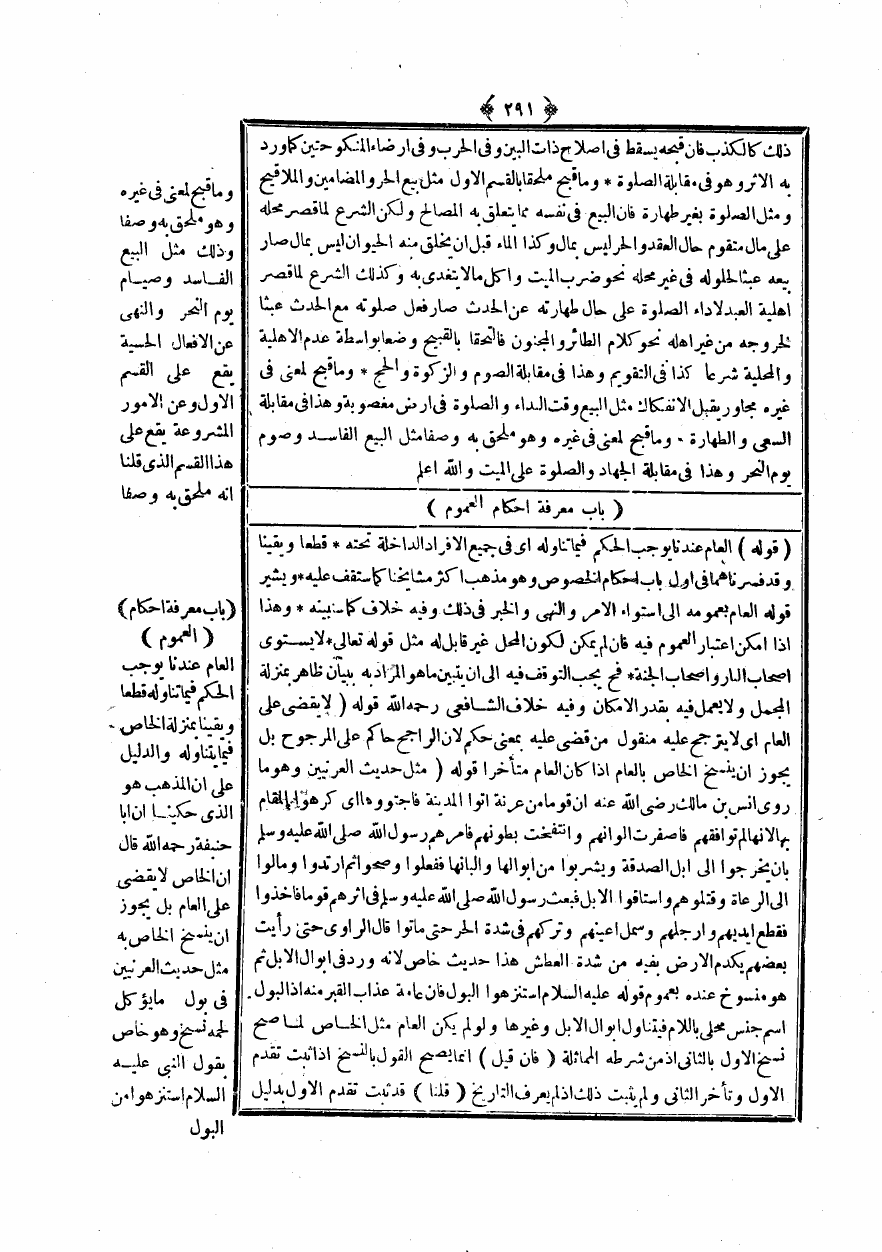 ﴿ ٢٩١ ﴾
ذلك كالكذب فان قبحه يسقط فى اصلاح ذات البين وفى الحرب وفى ارضاء المنكوحتين كما ورد
به الاثر وهو فى مقابلة الصلوة * وما قبح ملحقا بالقسم الاول مثل بيع الحر والمضامين والملاقيح
ومثل الصلوة بغير طهارة فان البيع فى نفسه مما يتعلق به المصالح ولكن الشرع لما قصر محله
على مال متقوم حال العقد والحر ليس بمال وكذا الماء قبل ان يخلق منه الحيوان ليس بمال صار
بيعه عبثا لحلوله فى غير محله نحو ضرب الميت واكل ما لا يتغدى به وكذلك الشرع لما قصر
اهلية العبد لاداء الصلوة على حال طهارته عن الحدث صار فعل صلوته مع الحدث عبثا
لخروجه من غير اهله نحو كلام الطائر والمجنون فالتحقا بالقبيح وضعا بواسطة عدم الاهلية
والمحلية شرعا كذا فى التقويم وهذا فى مقابلة الصوم والزكوة والحج * وما قبح لمعنى فى
غيره مجاور يقبل الانفكاك مثل البيع وقت النداء والصلوة فى ارض مغصوبة وهذا فى مقابلة
السعى والطهارة * وما قبح لمعنى فى غيره وهو ملحق به وصفا مثل البيع الفاسد وصوم
يوم النحر وهذا فى مقابلة الجهاد والصلوة على الميت والله اعلم
( باب معرفة احكام العموم )
( قوله ) العام عندنا يوجب الحكم فيما تناوله اى فى جميع الافراد الداخلة تحته * قطعا ويقينا
وقد فسرناهما فى اول باب احكام الخصوص وهو مذهب اكثر مشايخنا كما ستقف عليه * ويشير
قوله العام بعمومه الى استواء الامر والنهى والخبر فى ذلك وفيه خلاف كما سنبينه * وهذا
اذا امكن اعتبار العموم فيه فان لم يمكن لكون المحل غير قابل له مثل قوله تعالى * لا يستوى
اصحاب النار واصحاب الجنة * فح يجب التوقف فيه الى ان يتبين ما هو المراد به ببيان ظاهر بمنزلة
المجمل ولا يعمل فيه بقدر الامكان وفيه خلاف الشافعى رحمه الله قوله ( لا يقضى على
العام اى لا يترجح عليه منقول من قضى عليه بمعنى حكم لان الراجح حاكم على المرجوح بل
يجوز ان ينسخ الخاص بالعام اذا كان العام متأخرا قوله ( مثل حديث العرنيين وهو ما
روى انس بن مالك رضى الله عنه ان قوما من عرنة اتوا المدينة فاجتووها اى كرهوا المقام
بها لانها لم توافقهم فاصفرت الوانهم وانتفخت بطونهم فامرهم رسول الله صلى الله عليه وسلم
بان يخرجوا الى ابل الصدقة ويشربوا من ابوالها والبانها ففعلوا وصحوا ثم ارتدوا ومالوا
الى الرعاة وقتلوهم واستاقوا الابل فبعث رسول الله صلى الله عليه وسلم فى اثرهم قوما فاخذوا
فقطع ايديهم وارجلهم وسمل اعينهم وتركهم فى شدة الحر حتى ماتوا قال الراوى حتى رأيت
بعضهم يكدم الارض بفيه من شدة العطش هذا حديث خاص لانه ورد فى ابوال الابل ثم
هو منسوخ عنده بعموم قوله عليه السلام استنزهوا البول فان عامة عذاب القبر منه اذ البول
اسم جنس محلى باللام فيتناول ابوال الابل وغيرها ولو لم يكن العام مثل الخاص لما صح
نسخ الاول بالثانى اذ من شرطه المماثلة ( فان قيل ) انما يصح القول بالنسخ اذا ثبت تقدم
الاول وتأخر الثانى ولم يثبت ذلك اذ لم يعرف التاريخ ( قلنا ) قد ثبت تقدم الاول بدليل
وما قبح لمعنى فى غيره
وهو ملحق به وصفا
وذلك مثل البيع
الفاسد وصيام
يوم النحر والنهى
عن الافعال الحسية
يقع على القسم
الاول وعن الامور
المشروعة يقع على
هذا القسم الذى قلنا
انه ملحق به وصفا
(باب معرفة احكام)
( العموم )
العام عندنا يوجب
الحكم فيما تناوله قطعا
ويقينا بمنزلة الخاص
فيما يتناوله والدليل
على ان المذهب هو
الذى حكينا ان ابا
حنيفة رحمه الله قال
ان الخاص لا يقضى
على العام بل يجوز
ان ينسخ الخاص به
مثل حديث العرنيين
فى بول ما يؤكل
لحمه نسخ وهو خاص
بقول النبى عليه
السلام استنزهوا من
البول